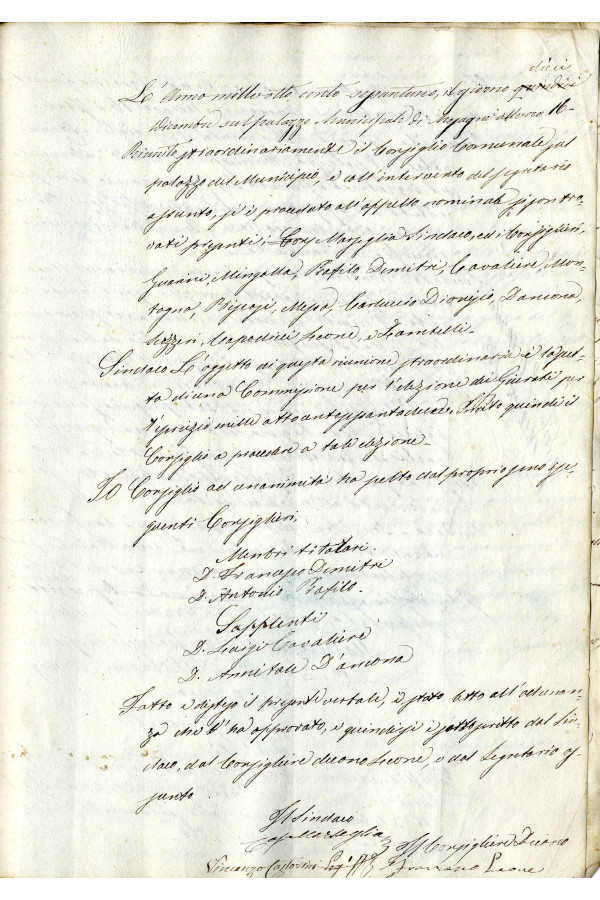 dieci
L'Anno mille otto cento settantuno, il giorno quindici
Dicembre sul palazzo Municipale di alle ore 16-
Riunito straordinariamente il Consiglio Comunale sul
palazzo del Municipio, e coll'intervento del Segretario
assunto, si è proceduto all'appello nominale si son tro-
vati presenti i Marseglia Sindaco, ed i Consiglieri,
Guarini, Mingolla, Profilo, Dimitri, Cavaliere, Mon-
tagna, Messa, Carluccio Dionisio, Dancona,
Scazzeri, Capodieci Leone, e Zantelli.
Sindaco L'oggetto di questa riunione straordinaria è la
ta di una Commissione per l'elezione dei Giurati per
l'esercizio mille ottocentossettantadue. Invito quindi il
Consiglio a procedere a tale elezione.
Il Consiglio ad unanimità ha scelto dal proprio seno i se-
guenti Consiglieri,
Membri titolari.
D. Francesco Dimitri
D. Antonio Profilo.
Supplenti
D. Luigi Cavaliere
D. Annibale D'ancona
Fatto e disteso il presente verbale, è stato letto all'adunan-
za che l'ha approvato, e quindi si è sottoscritto dal Sin-
daco, dal Consigliere Leone, e dal Segretario as-
sunto.
Il Sindaco
Marseglia
Il Consigliere
Vincenzo Leone